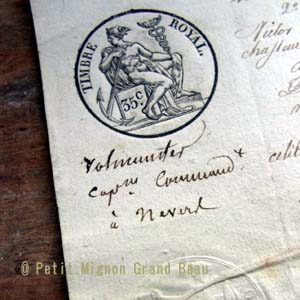 TIMBRE ROYAL.
35c.
Victor
Volmunster
capne Command.t
à Nevers
@ Petit Mignon Grand Beau